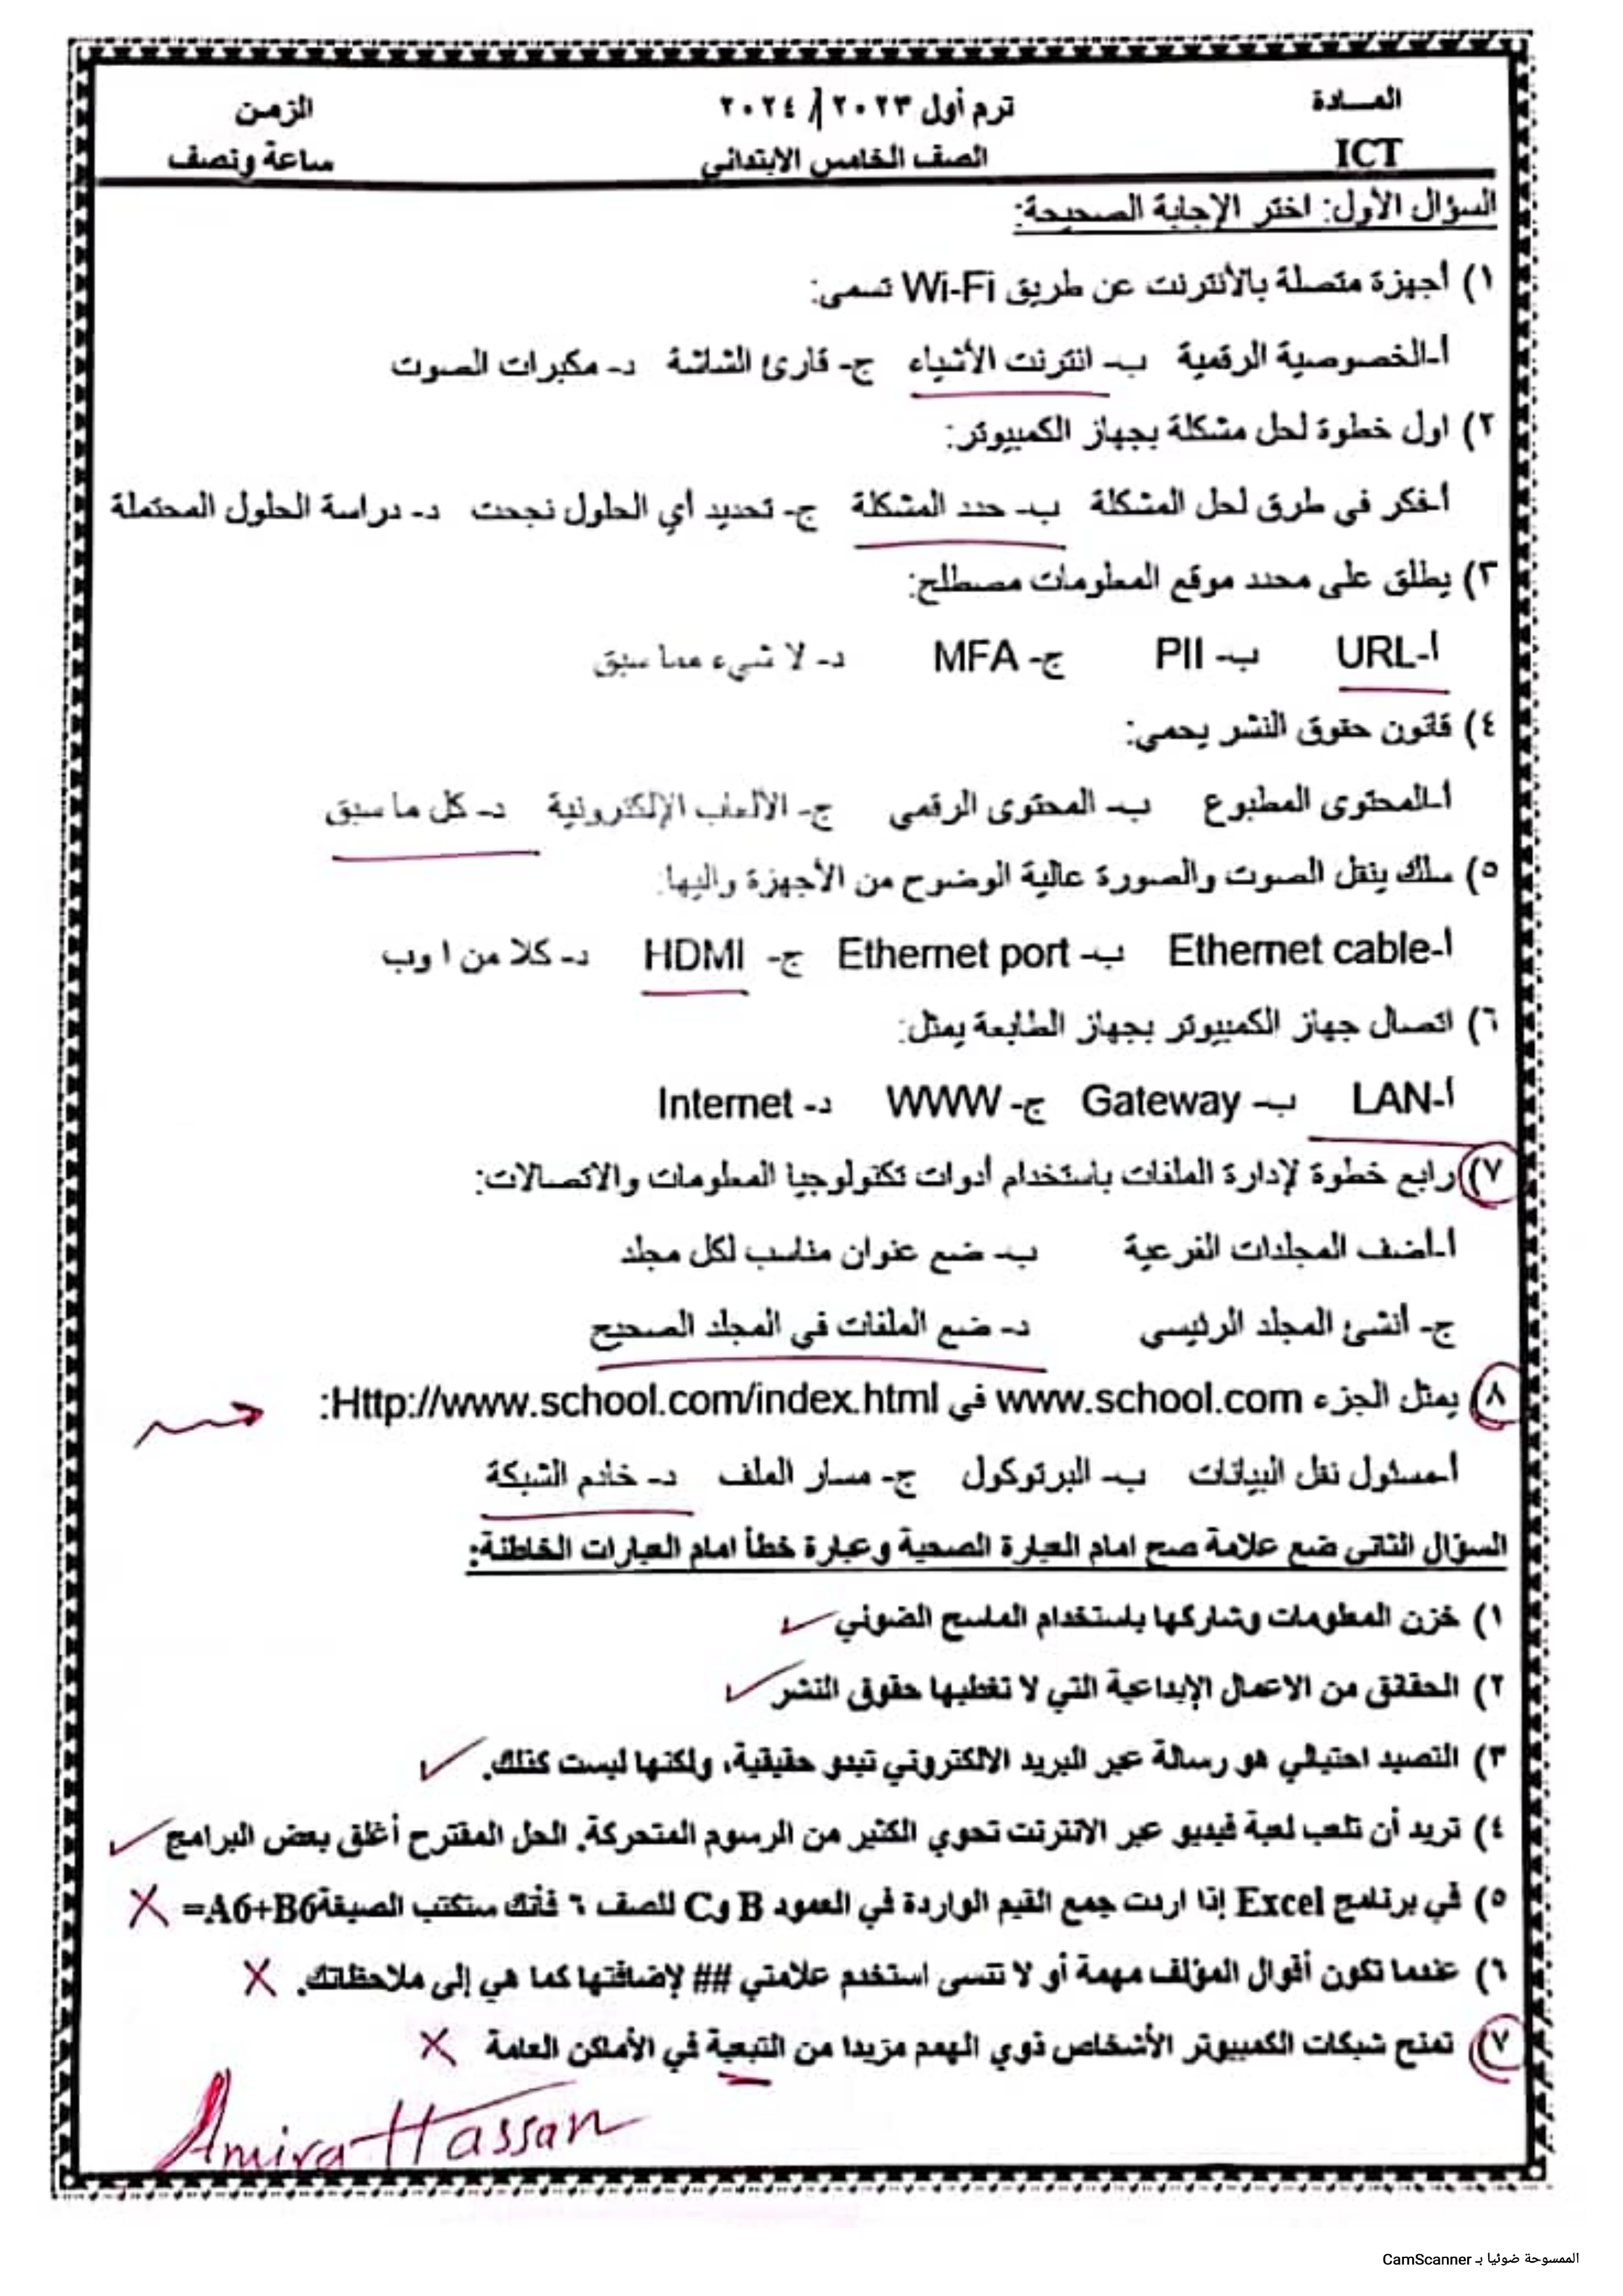 المـــادة ترم أول ٢٠٢٣ / ٢٠٢٤ الزمن
ICT الصف الخامس الابتدائي ساعة ونصف
السؤال الأول: اختر الإجابة الصحيحة:
١) أجهزة متصلة بالأنترنت عن طريق Wi-Fi تسمى:
أ-الخصوصية الرقمية ب- انترنت الأشياء ج- قارئ الشاشة د- مكبرات الصوت
٢) اول خطوة لحل مشكلة بجهاز الكمبيوتر:
أ-فكر في طرق لحل المشكلة ب- حدد المشكلة ج- تحديد أي الحلول نجحت د- دراسة الحلول المحتملة
٣) يطلق على محدد موقع المعلومات مصطلح:
أ-URL ب- PII ج- MFA د- لا شيء مما سبق
٤) قانون حقوق النشر يحمي:
أ-المحتوى المطبوع ب- المحتوى الرقمي ج- الألعاب الإلكترونية د- كل ما سبق
٥) سلك ينقل الصوت والصورة عالية الوضوح من الأجهزة واليها:
أ-Ethernet cable ب- Ethernet port ج- HDMI د- كلا من ا وب
٦) اتصال جهاز الكمبيوتر بجهاز الطابعة يمثل:
أ-LAN ب- Gateway ج- WWW د- Internet
٧) رابع خطوة لإدارة الملفات باستخدام أدوات تكنولوجيا المعلومات والاتصالات:
أ-أضف المجلدات الفرعية ب- ضع عنوان مناسب لكل مجلد
ج- أنشئ المجلد الرئيسي د- ضع الملفات في المجلد الصحيح
٨) يمثل الجزء www.school.com في Http://www.school.com/index.html:
أ-مسئول نقل البيانات ب- البرتوكول ج- مسار الملف د- خادم الشبكة
السؤال الثاني ضع علامة صح امام العبارة الصحية وعبارة خطأ امام العبارات الخاطئة:
١) خزن المعلومات وشاركها باستخدام الماسح الضوئي ✓
٢) الحقائق من الاعمال الإبداعية التي لا تغطيها حقوق النشر ✓
٣) التصيد احتيالي هو رسالة عبر البريد الالكتروني تبدو حقيقية، ولكنها ليست كذلك. ✓
٤) تريد أن تلعب لعبة فيديو عبر الانترنت تحوي الكثير من الرسوم المتحركة. الحل المقترح أغلق بعض البرامج ✓
٥) في برنامج Excel إذا اردت جمع القيم الواردة في العمود B وC للصف ٦ فأنك ستكتب الصيغة =A6+B6 X
٦) عندما تكون أقوال المؤلف مهمة أو لا تنسى استخدم علامتي ## لإضافتها كما هي إلى ملاحظاتك. X
٧) تمنح شبكات الكمبيوتر الأشخاص ذوي الهمم مزيدا من التبعية في الأماكن العامة X
Amira Hassan
الممسوحة ضوئيا بـ CamScanner